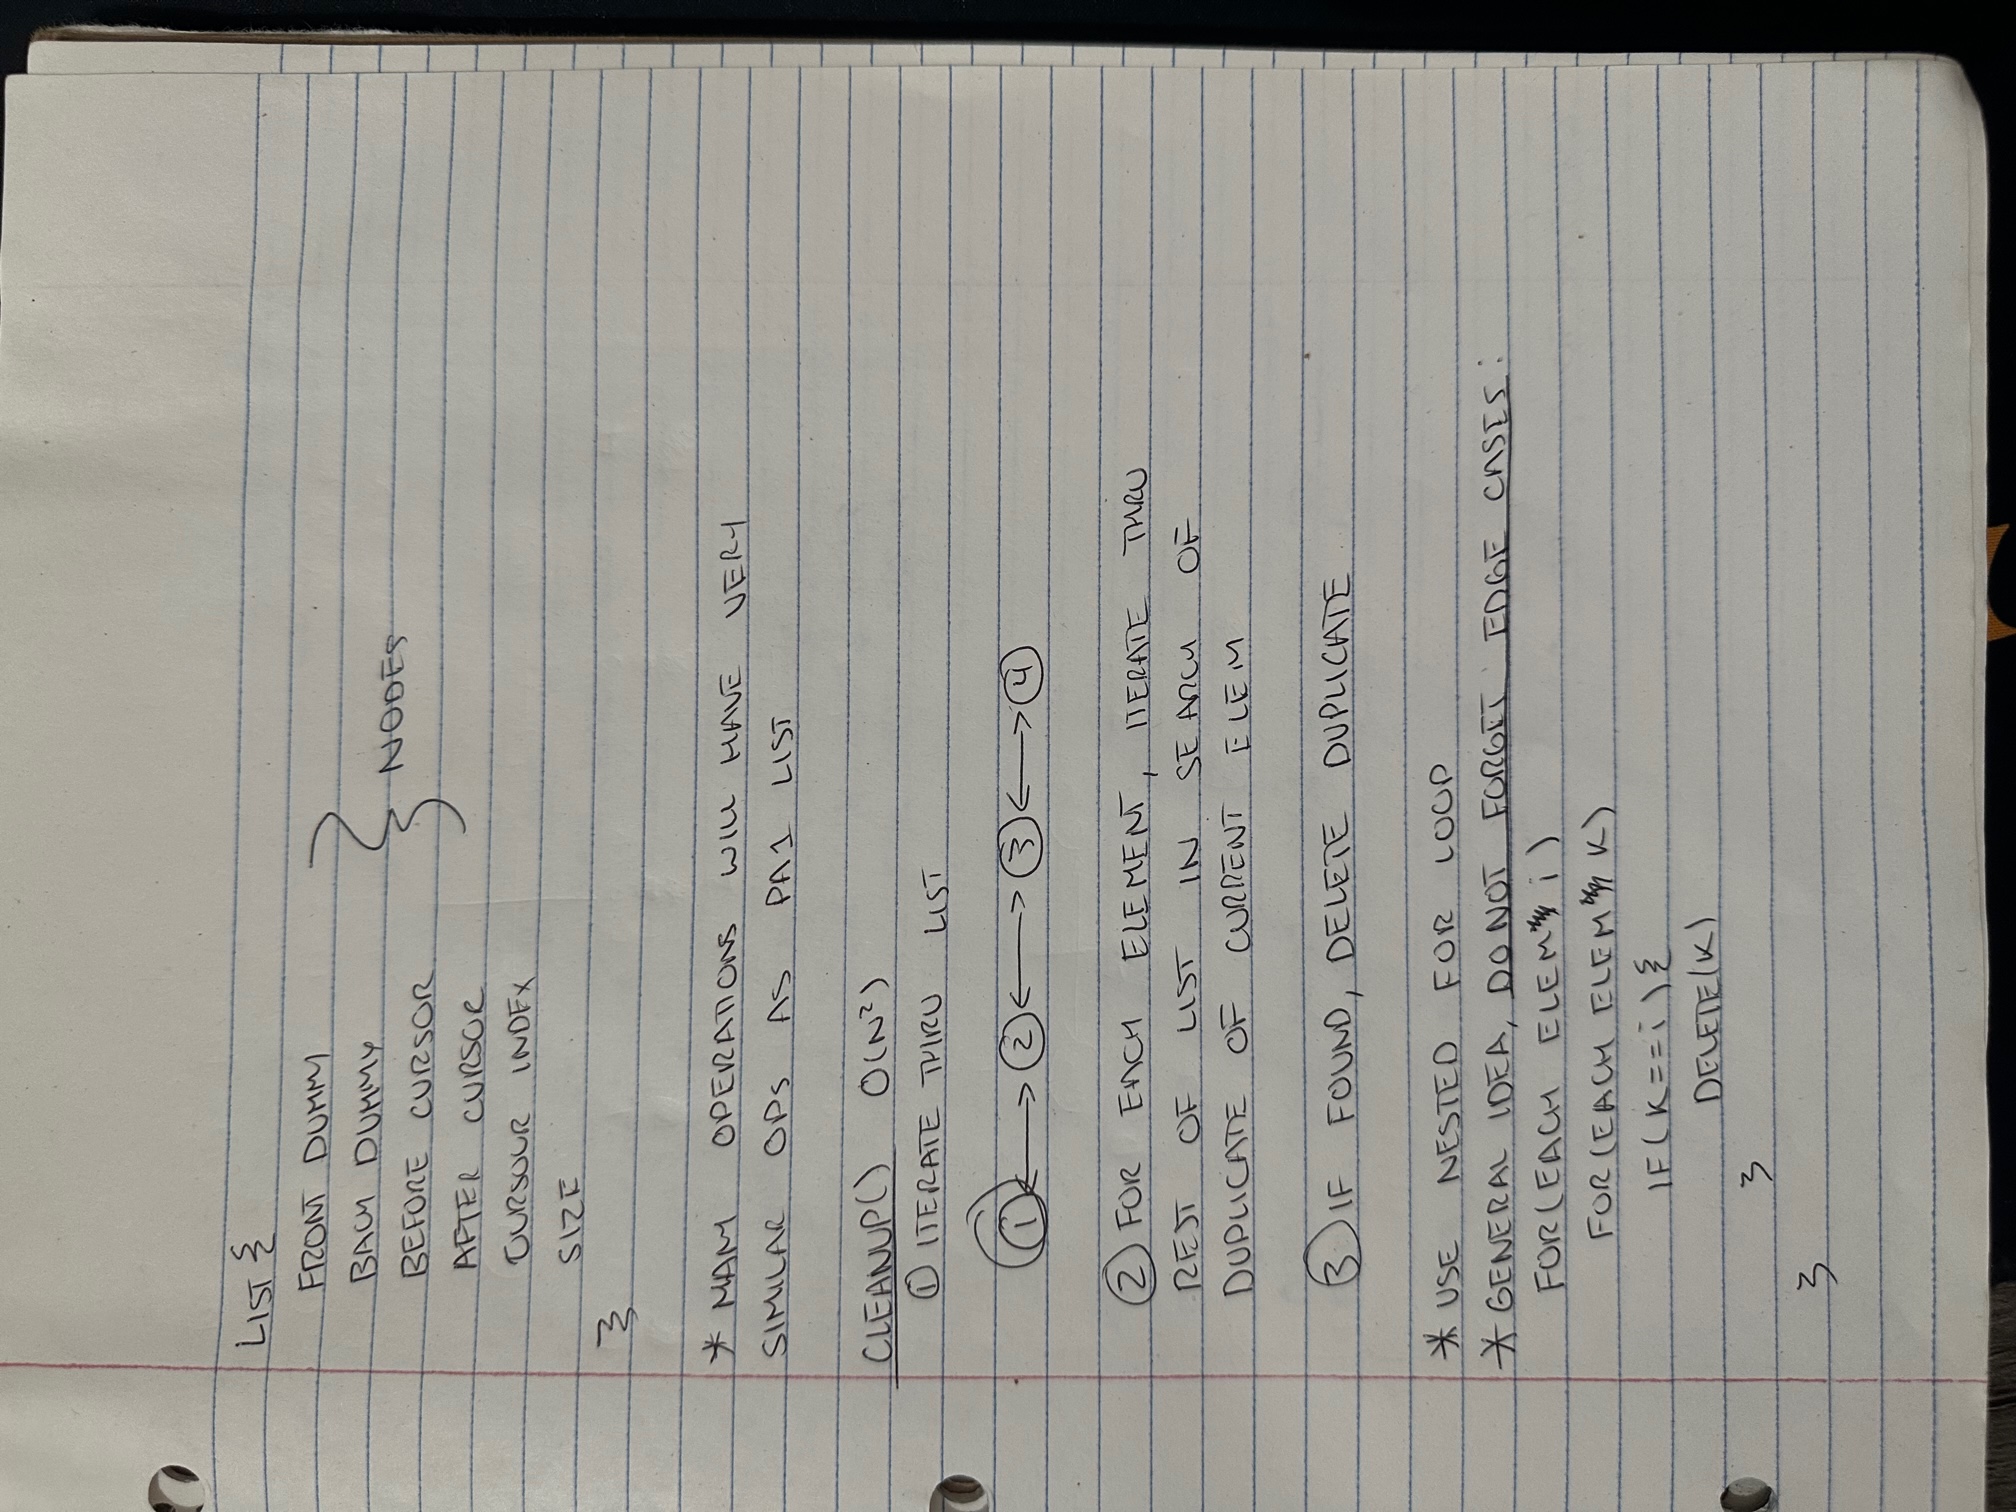 LIST {
FRONT DUMMY
BACK DUMMY
BEFORE CURSOR
AFTER CURSOR
NODES
CURSOUR INDEX
SIZE
}
* MANY OPERATIONS WILL HAVE VERY
SIMILAR OPS AS PA1 LIST
CLEANUP() O(N²)
① ITERATE THRU LIST
1 ←→ 2 ←→ 3 ←→ 4
② FOR EACH ELEMENT, ITERATE THRU
REST OF LIST IN SEARCH OF
DUPLICATE OF CURRENT ELEM
③ IF FOUND, DELETE DUPLICATE
* USE NESTED FOR LOOP
* GENERAL IDEA, DO NOT FORGET EDGE CASES:
FOR(EACH ELEM i)
FOR(EACH ELEM K)
IF(K==i){
DELETE(K)
}
}